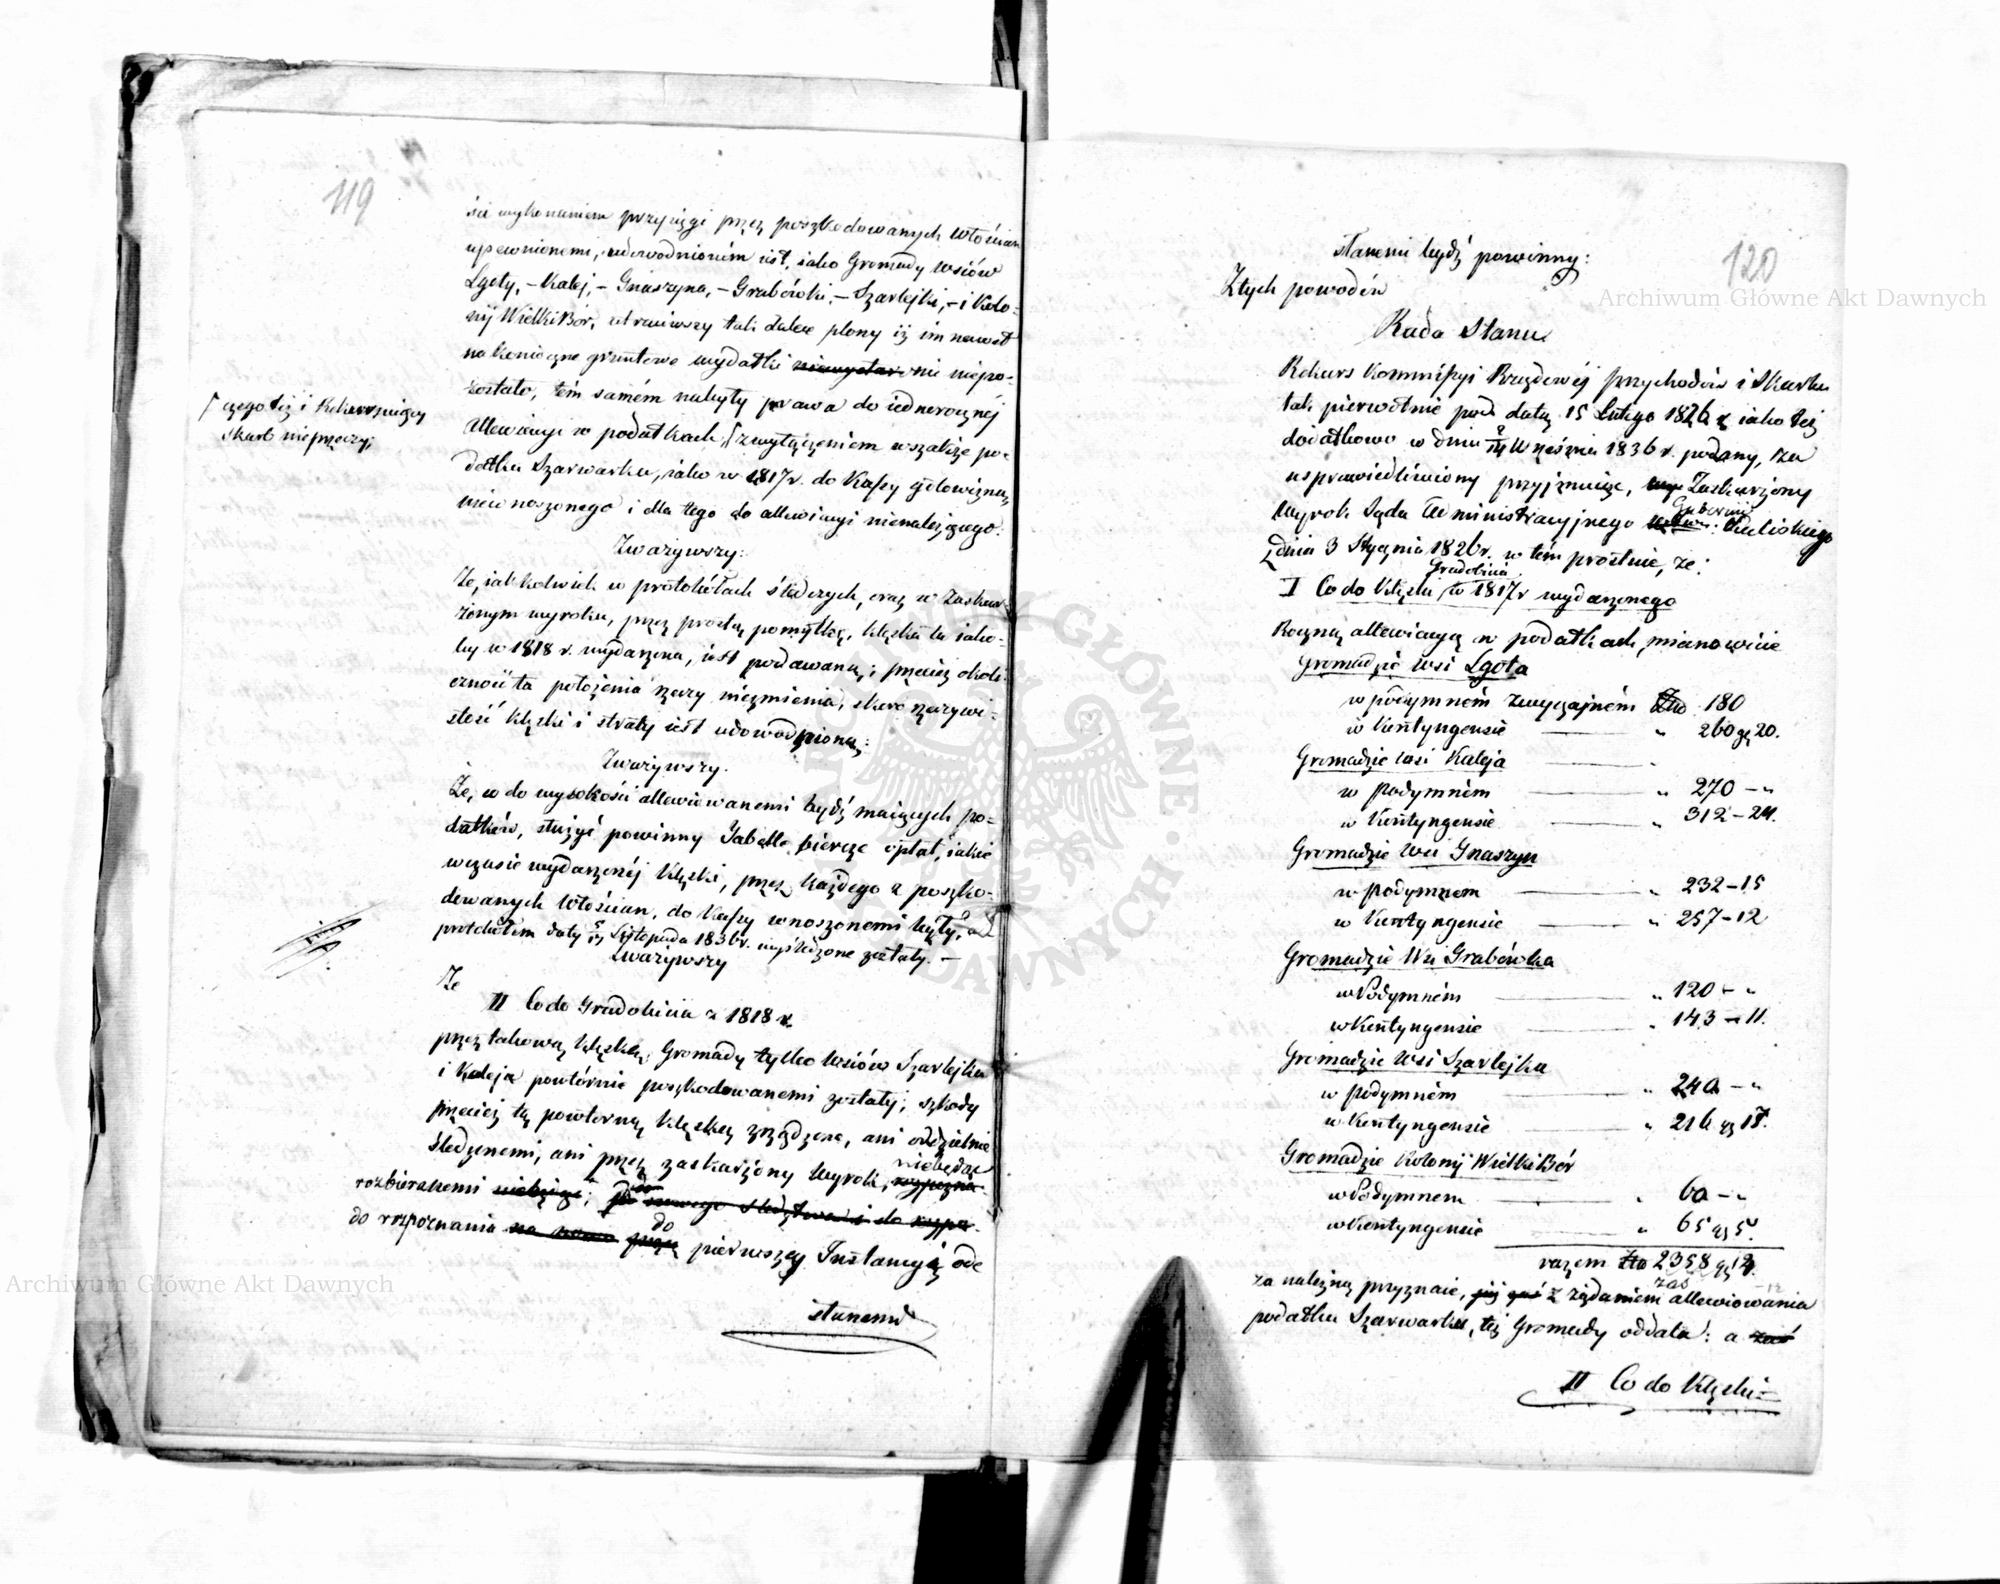 119
ści wykonaniem przysięgi przez poszkodowanych Włościan
upewnionemi, udowodnioném jest, iako Gromady wsiów
Lgoty, – Kalej, – Gnaszyna, – Grabówki, – Szarlejki, – i Kolo-
nij Wielki Bór, utraciwszy tak dalece plony iż im nawet
na konieczne gruntowe wydatki niewystar nic niepo-
zostało, tém samém nabyły prawa do iednorocznéj
Allewiacyi w podatkach, ⌈ z wyłączeniem wszakże po-
⌈ czego też i Rekurruiący
Skarb nieprzeczy;
datku Szarwarku, iako w 1817 r. do Kassy gotowizną
niewnoszonego i dla tego do allewiacyi nienależącego.
Zważywszy:
Że, iakkolwiek w protokółach śledczych, oraz w Zaskar-
żonym wyroku, przez prostą pomyłkę, klęska ta iako-
by w 1818 r. wydarzona, iest podawaną; przecież okoli-
czność ta położenia rzeczy niezmienia, skoro rzeczywi-
stość klęski i straty iest udowodnioną;
Zważywszy:
Że, co do wysokości allewiowanemi bydź maiących po-
datków, służyć powinny Tabelle biercze opłat, iakie
w czasie wydarzonéj klęski, przez każdego z poszko-
dowanych Włościan, do Kassy wnoszonemi były, a
protokółem daty Listopada 1836 r. wyśledzone zostały. –
Zważywszy
Że
II Co do Gradobicia z 1818 r.
przez takową klęskę, Gromady tylko wsiów Szarlejka
i Kaleja powtórnie poszkodowanemi zostały; szkody
przecież tą powtórną klęską zrządzone, ani oddzielnie
śledzonemi, ani przez zaskarżony Wyrok, niebędąc rozpozna-
rozbieranemi niebędąc; do nowego śledztwa i do rozpo-
do rozpoznania na nowo przez do pierwszej Instancyi ode
słanemi
120
słanemi bydź powinny:
Z tych powodów
Rada Stanu
Rekurs Kommissyi Rządowéj przychodów i Skarbu
tak pierwotnie pod datą 15 Lutego 1826 r. iako też
dodatkowo w dniu Września 1836 r. podany, za
usprawiedliwiony przyjmuiąc, Zaskarżony
Wyrok Sądu Administracyjnego Gubernij Kaliskiego
z dnia 3 Stycznia 1826 r. w tém prostuie, że:
I Co do Klęski Gradobicia w 1817 r wydarzonego
Roczną allewiacyą w podatkach, mianowicie
Gromadzie wsi Lgota
w podymném zwyczajném Złp 180
w Kontyngensie — „ 260 gr 20.
Gromadzie wsi Kaleja
w podymném — „ 270 – „
w Kontyngensie — „ 312 – 24.
Gromadzie Wsi Gnaszyn
w podymnem — „ 232 – 15
w Kontyngensie — „ 257 – 12
Gromadzie Wsi Grabówka
w Podymném — „ 120 – „
w Kontyngensie — „ 143 – 11.
Gromadzie Wsi Szarlejka
w podymném — „ 240 – „
w Kontyngensie — „ 216 gr 17.
Gromadzie Kolonij Wielki Bór
w Podymnem — „ 60 – „
w Kontyngensie — „ 65 gr 5.
razem Złp 2358 gr 14.
za należną przyznaie, z żądaniem zaś allewiowania
podatku Szarwarku, też Gromady oddala: a zaś
II Co do Klęski
Archiwum Główne Akt Dawnych
Archiwum Główne Akt Dawnych
ARCHIWUM GŁÓWNE AKT DAWNYCH